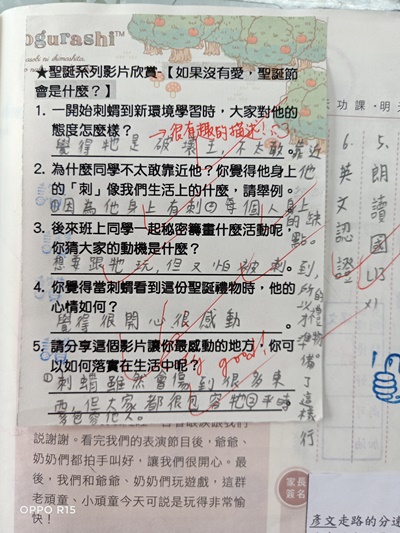 ogurashi™
★聖誕系列影片欣賞-【如果沒有愛，聖誕節
會是什麼？】
1. 一開始刺蝟到新環境學習時，大家對他的
態度怎麼樣？
很有趣的描述！
覺得牠是破壞王，不太敢靠近他
2. 為什麼同學不太敢靠近他？你覺得他身上
的「刺」像我們生活上的什麼，請舉例。
①因為他身上有刺②每個人身上的缺點。
3. 後來班上同學一起秘密籌畫什麼活動呢，
你猜大家的動機是什麼？
想要跟牠玩，但又怕被刺到，所以才準備了這樣的禮物。
4. 你覺得當刺蝟看到這份聖誕禮物時，他的
心情如何？
覺得很開心很感動。
5. 請分享這個影片讓你最感動的地方，你可
以如何落實在生活中呢？
good!
①刺蝟雖然會傷到很多東
西，但大家都很包容牠②平時
要包容他人。
行
天功課．明天
5.朗讀國L13
x1
6.英文認證
說謝謝。看完我們的表演節目後，爺爺、
奶奶們都拍手叫好，讓我們很開心。最
後，我們和爺爺、奶奶們玩遊戲，這群
老頑童、小頑童今天可說是玩得非常愉
快！
家長
簽名
彥文走路的分速
OPPO R15